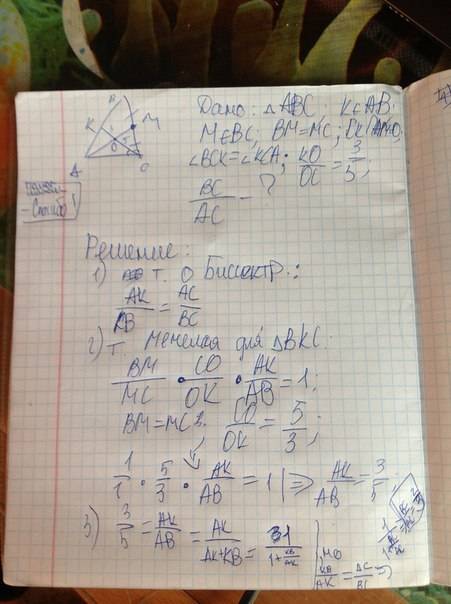 B
K
M
O
A
C
Дано: △ABC; K∈AB;
M∈BC; BM=MC; CK∩AM=O;
∠BCK=∠KCA; KO/OC = 3/5;
BC/AC - ?
Способ!
Решение:
1) Т. О Биссектр.:
AK/KB = AC/BC
2) Т. Менелая для △BKC.
BM/MC · CO/OK · AK/AB = 1;
BM=MC; CO/OK = 5/3;
1/1 · 5/3 · AK/AB = 1 | ⇒ AK/AB = 3/5
3) 3/5 = AK/AB = AK/(AK+KB) = 1/(1+KB/AK)
но